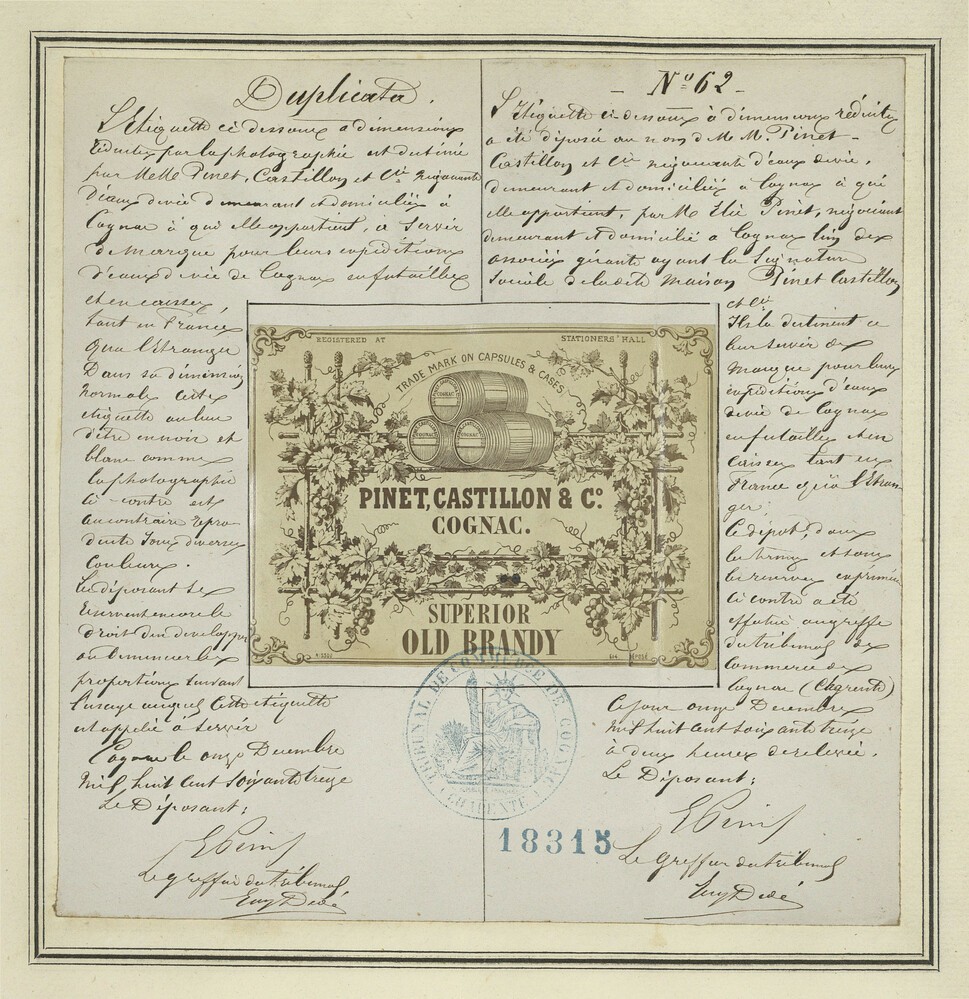 Duplicata.
L'Etiquette ci dessous a dimensions
réduites par la photographie est destinée
par MM Pinet, Castillon et Cie Négociants
d'eaux de vie demeurant et domiciliés à
Cognac à qui elle appartient, à servir
de marque pour leurs expéditions
d'eaux de vie de Cognac en futailles
et en caisses
tant en France
qu'a l'Etranger
Dans sa dimension
normale cette
etiquette au lieu
d'être en noir et
blanc comme
la photographie
ci-contre est
au contraire repro-
duite sous diverses
couleurs.
Le déposant se
réserve encore le
droit d'en développer
ou diminuer les
proportions suivant
l'usage auquel cette etiquette
est appelée à servir
Cognac le onze Decembre
mil huit cent soixante treize
Le Déposant:
EPinet
Le greffier du tribunal
- No 62 -
L'Etiquette ci-dessous à dimensions réduites
a été déposée au nom de M.M. Pinet-
Castillon et Cie négociants d'eaux de vie,
demeurant et domiciliés a Cognac à qui
elle appartient, par M Elie Pinet, négociant
demeurant et domicilié a Cognac l'un des
associés gérants ayant la signature
sociale de la dite maison Pinet Castillon
et Cie
Ils la destinent a
leur servir de
marque pour leurs
expéditions d'eaux
de vie de Cognac
en futailles et en
caisses tant en
France qu'à l'Etran-
ger.
Ce dépôt, dans
les termes et sous
les réserves exprimées
ci contre a été
effectué au greffe
du tribunal de
Commerce de
Cognac (Charente)
Ce jour onze Decembre
mil huit cent soixante treize
à deux heures de relevée.
Le Déposant:
EPinet
Le greffier du tribunal
REGISTERED AT STATIONERS' HALL
TRADE MARK ON CAPSULES & CASES
COGNAC
COGNAC
COGNAC
PINET, CASTILLON & Co.
COGNAC.
SUPERIOR
OLD BRANDY
DÉPOSÉ
TRIBUNAL DE COMMERCE DE COGNAC
CHARENTE
18315